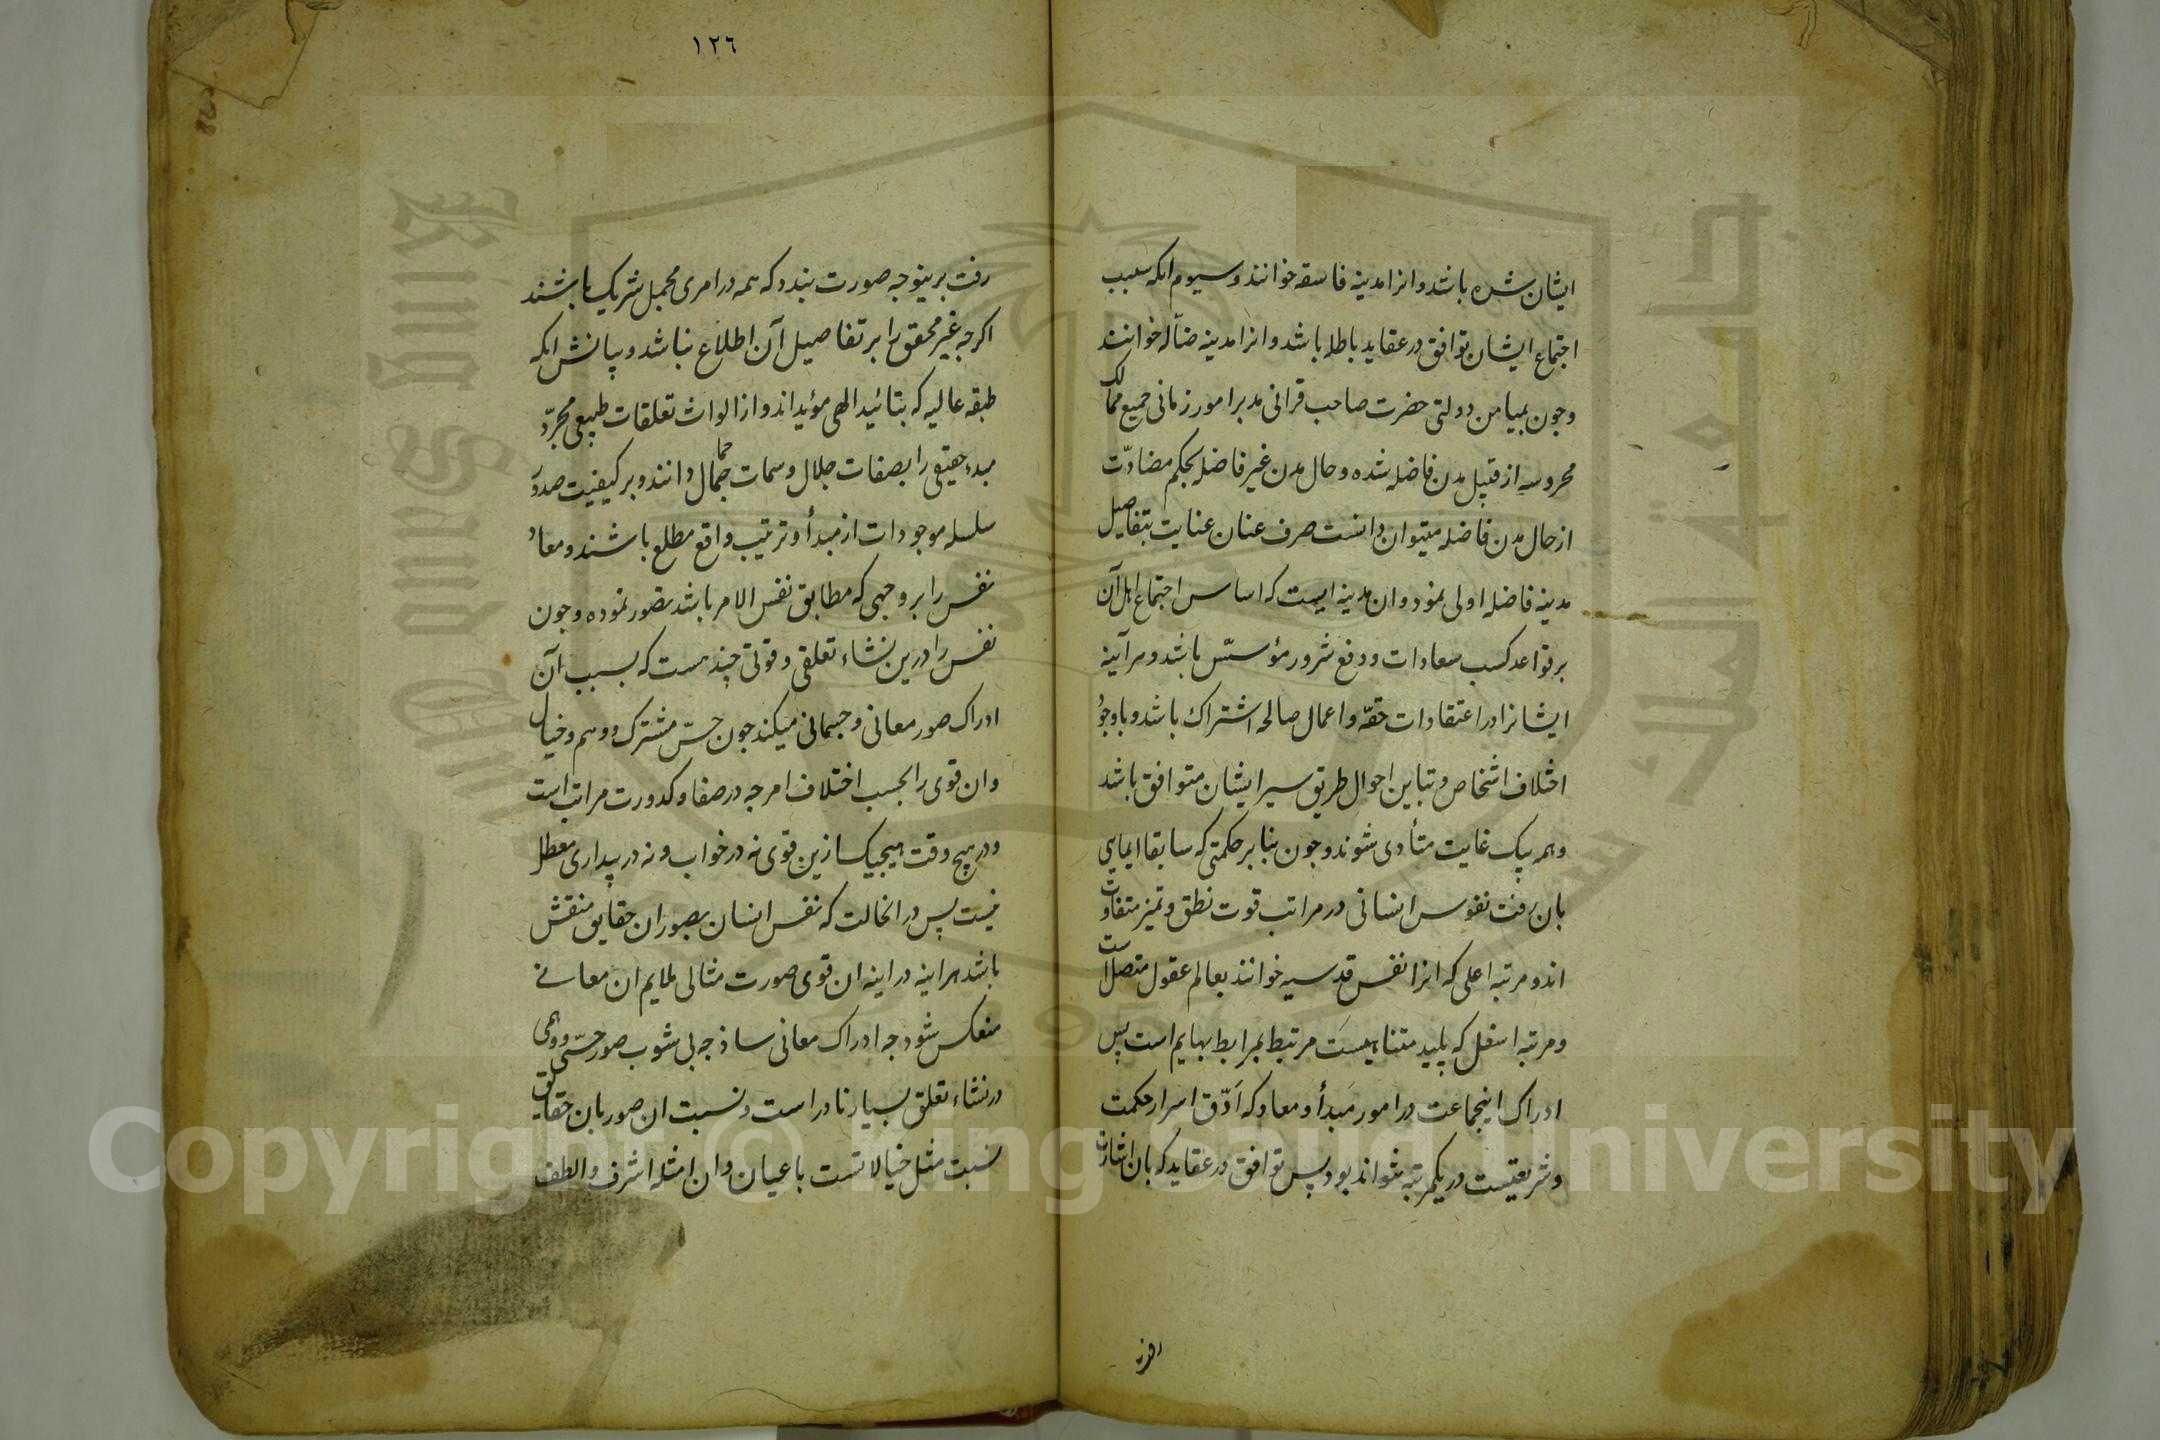 ایشان شده باشد وانرا مدینه فاسقه خوانند وسیوم انکه سبب
اجتماع ایشان توافق در عقاید باطله باشد وانرا مدینه ضالّه خوانند
وجون بمیامن دولتی حضرت صاحب قرانی مدبر امور زمانی جمیع ممالک
محروسه از قبیل مدن فاضله شده وحال مدن غیر فاضله بحکم مضادّت
از حال مدن فاضله میتوان دانست صرف عنان عنایت بتفاصیل
مدینه فاضله اولی نمود وان مدینه ایست که اساس اجتماع اهل آن
بر قواعد کسب سعادات ودفع شرور مؤسّس باشد وهر آینه
ایشانرا در اعتقادات حقّه واعمال صالحه اشتراک باشد وباوجود
اختلاف اشخاص وتباین احوال طریق سیر ایشان متوافق باشد
وهمه بیک غایت متأدی شوند وجون بنا بر حکمتی که سابقا ایمایی
بان رفت نفوس انسانی در مراتب قوت نطق وتمیز متفاوت
اند ومرتبه اعلی که انرا نفس قدسیه خوانند بعالم عقول متصل است
ومرتبه اسفل که پلید متناهیست مرتبط بمرابط بهایم است پس
ادراک اینجماعت در امور مبدأ ومعاد که اَدَقّ اسرار حکمت
وشریعتست در یکمرتبه نتواند بود پس توافق در عقاید که بان اشارت
رفت
١٢٦
رفت برینوجه صورت بندد که همه در امری مجمل شریک باشند
اکرجه غیر محقق را بر تفاصیل آن اطلاع نباشد وبیانش انکه
طبقه عالیه که بتائید الهی مؤیداند واز الواث تعلقات طبیعی مجرّد
مبدء حقیقی را بصفات جلال وسمات جمال دانند وبر کیفیت صدور
سلسله موجودات از مبدأ وترتیب واقع مطلع باشند ومعاد
نفس را بر وجهی که مطابق نفس الامر باشد تصور نموده وجون
نفس را درین نشاء تعلقی وقوتی چند هست که بسبب آن
ادراک صور معانی وجسمانی میکند جون حسّ مشترک ووهم وخیال
وان قوی را بحسب اختلاف امزجه در صفا وکدورت مراتب است
ودر هیچ وقت هیجیک ازین قوی نه در خواب ونه در بیداری معطل
نیست پس در انحالت که نفس انسان بصور ان حقایق منقش
باشد هراینه در اینه ان قوی صورت مثالی ملایم ان معانی
منعکس شود جه ادراک معانی ساذجه بی شوب صور حسّی ووهمی
در نشاء تعلق بسیار نادر است ونسبت ان صور بان حقایق
نسبت مثل خیالاتست با عیان وان امثله اشرف والطف
Copyright © King Saud University